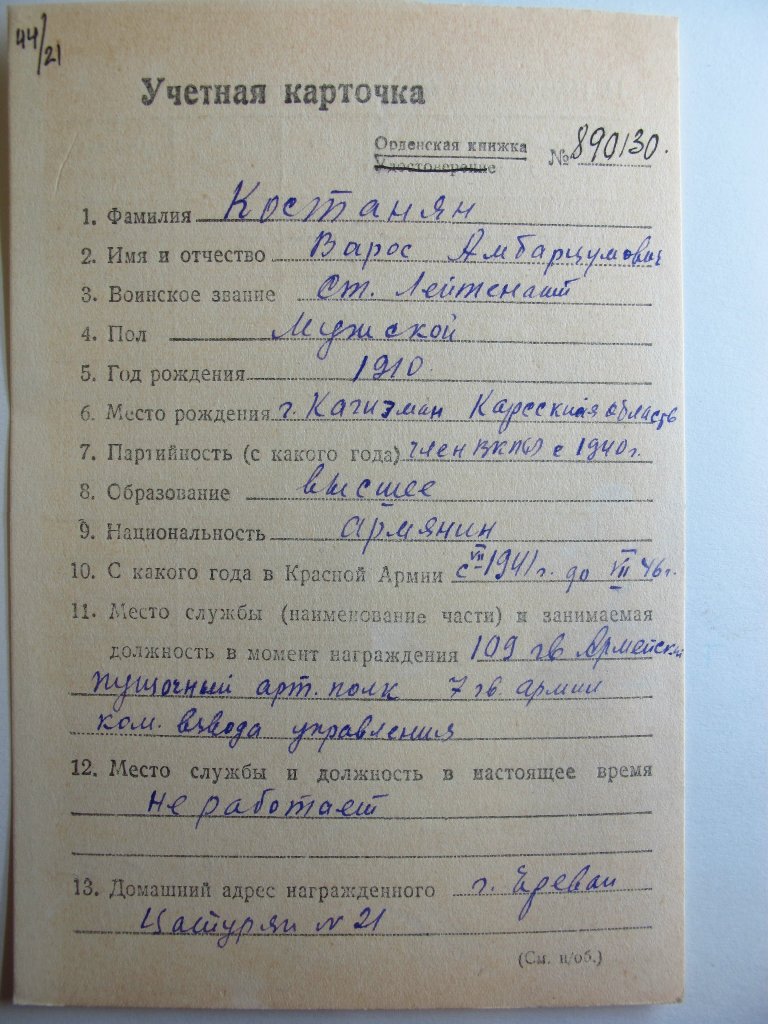 44/21
Учетная карточка
Орденская книжка
Удостоверение
№ 890130.
1. Фамилия Костанян
2. Имя и отчество Варос Амбарцумович
3. Воинское звание Ст. Лейтенант
4. Пол Мужской
5. Год рождения 1910.
6. Место рождения г. Кагизман Карсская область
7. Партийность (с какого года) член ВКПб с 1940г.
8. Образование высшее
9. Национальность армянин
10. С какого года в Красной Армии с VII-1941г. до VII 46г.
11. Место службы (наименование части) и занимаемая
должность в момент награждения 109 гв Армейский
пушочный арт. полк 7 гв. армии
ком. взвода управления
12. Место службы и должность в настоящее время
не работает
13. Домашний адрес награжденного г. Ереван
Цатурян N 21
(См. н/об.)